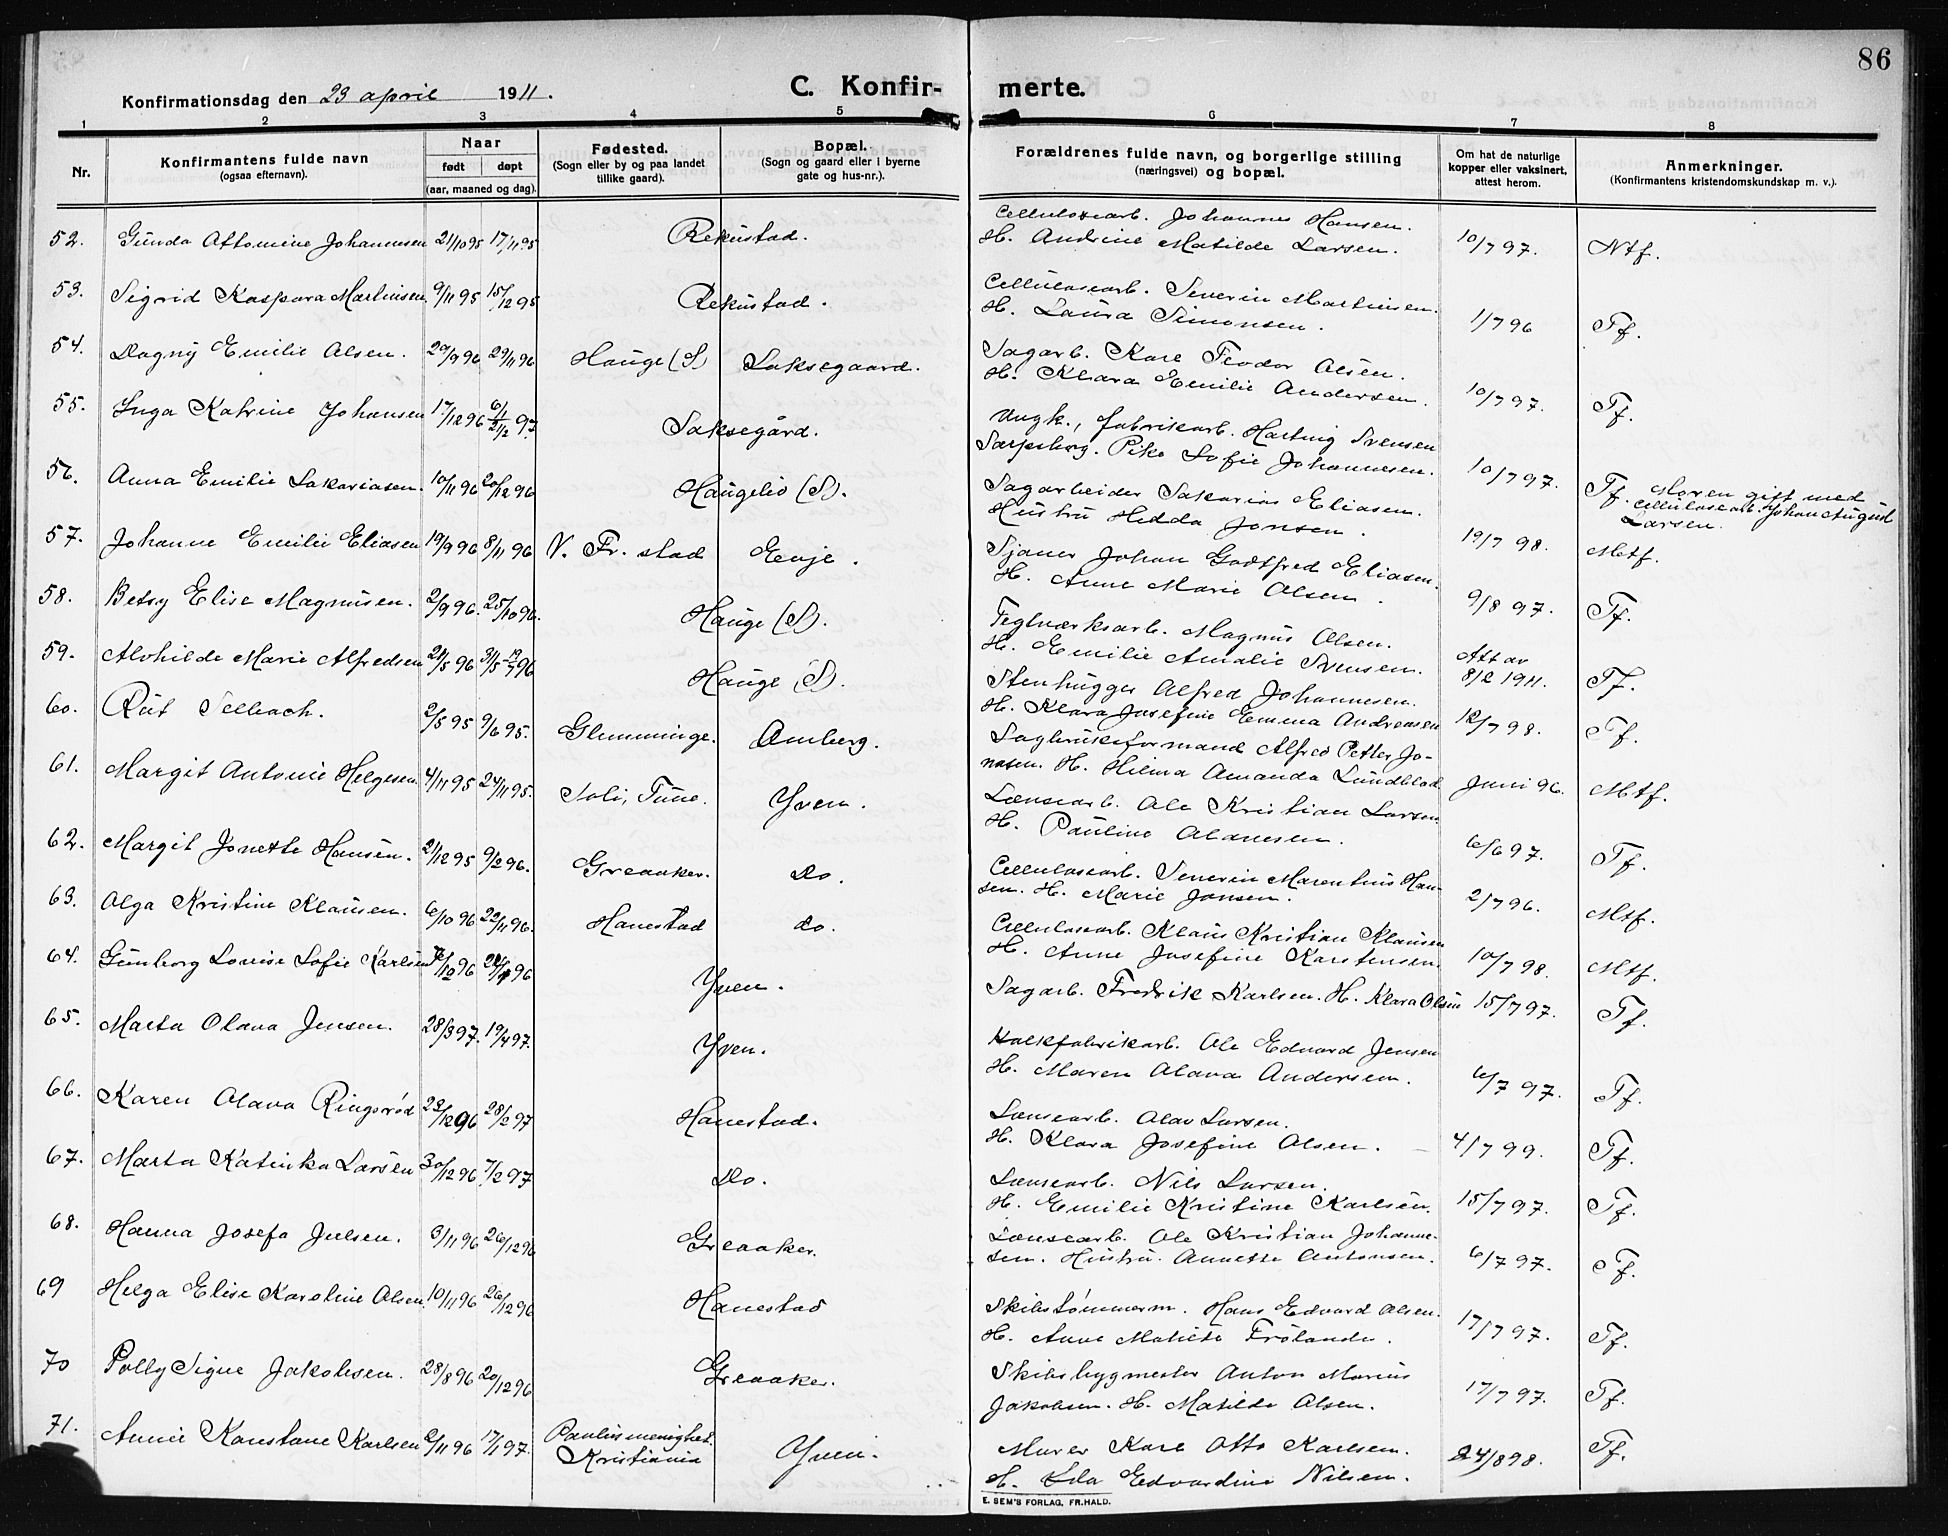 86
Konfirmationsdag den 23 april 1911.
C. Konfir- merte.
1 2 3 4 5 6 7 8
Nr.
Konfirmantens fulde navn
(ogsaa efternavn).
Naar
født døpt
(aar, maaned og dag).
Fødested.
(Sogn eller by og paa landet
tillike gaard).
Bopæl.
(Sogn og gaard eller i byerne
gate og hus-nr.).
Forældrenes fulde navn, og borgerlige stilling
(næringsvei) og bopæl.
Om hat de naturlige
kopper eller vaksinert,
attest herom.
Anmerkninger.
(Konfirmantens kristendomskundskap m. v.).
52. Gunda Ottomine Johannesen 21/10 95 17/11 95 Rekustad. Cellulosearb. Johannes Hansen.
H. Andrine Matilde Larsen. 10/7 97. Ntf.
53. Sigrid Kaspara Martinsen 9/11 95 15/12 95 Rekustad. Cellulosearb. Severin Martinsen.
H. Laura Simonsen. 1/7 96 Tf.
54. Dagny Emilie Olsen. 20/9 96 29/11 96 Hauge (S) Saksegaard. Sagarb. Karl Teodor Olsen.
H. Klara Emilie Andersen. 10/7 97. Tf.
55. Inga Katrine Johansen 17/12 96 6/1 21/2 97. Saksegård. Ungk., fabrikarb. Hartvig Svensen
Sarpsborg. Pike Sofie Johannesen. 10/7 97. Tf. Moren gift med
cellulosearb. Johan August
Larsen.
56. Anna Emilie Sakariasen. 10/11 96 20/12 96 Haugelid (S). Sagarbeider Sakarias Eliasen.
Hustru Hedda Jonsen. 19/7 98. Mtf.
57. Johanne Emilie Eliasen 19/9 96 8/11 96 V. Fr. stad Evje. Sjauer Johan Godtfred Eliasen.
H. Anne Marie Olsen. 9/8 97. Tf.
58. Betsy Elise Magnusen. 2/9 96. 25/10 96. Hauge (S). Teglverksarb. Magnus Olsen.
H. Emilie Amalie Svensen. Att av
8/2 1911. Tf.
59. Alvhilde Marie Alfredsen 21/5 96 31/5-19/7 96 Hauge (S). Stenhugger Alfred Johannesen.
H. Klara Josefine Emma Andreasen 12/7 98. Tf.
60. Rut Selbach. 2/5 95 9/6 95. Glemminge. Amberg. Sagbruksformand Alfred Petter Jo-
nasen. H. Hilma Amanda Lundblad Juni 96. Mtf.
61. Margit Antonie Helgesen 4/11 95 24/11 95. Soli, Tune. Yven. Lænsearb. Ole Kristian Larsen.
H. Pauline Olausen. 6/6 97. Tf.
62. Margit Jonette Hansen. 21/12 95 9/2 96. Greaaker. Do. Cellulosearb. Severin Marentius Han-
sen. H. Marie Jansen. 2/7 96. Mtf.
63. Olga Kristine Klausen. 6/10 96 22/11 96. Hanestad do. Cellulosearb. Klaus Kristian Klausen
H. Anne Josefine Karstensen. 10/7 98. Mtf.
64. Gunborg Lovise Sofie Karlsen /12 96 96 Yven. Sagarb. Fredrik Karlsen. H. Klara Olsen 15/7 97. Tf.
65. Marta Olava Jensen. 28/3 97. 19/4 97. Yven. Kalkfabrikarb. Ole Edvard Jensen
H. Maren Olava Andersen. 6/7 97. Tf.
66. Karen Olava Ringsrød 23/12 96 28/2 97 Hanestad. Lænsearb. Olav Larsen.
H. Klara Josefine Olsen. 4/7 99. Tf.
67. Marta Katinka Larsen 30/12 96 7/2 97 Do. Lænsearb. Nils Larsen.
H. Emilie Kristine Karlsen. 15/7 97. Tf.
68. Hanna Josefa Julsen. 9/11 96 26/12 96 Greaaker. Lænsearb. Ole Kristian Johanne-
sen. Hustru. Annette Antonsen. 6/7 97. Tf.
69 Helga Elise Karoline Olsen 10/11 96 26/12 96 Hanestad Skibstømmerm. Hans Edvard Olsen.
H. Anne Matilde Frølande. 17/7 97. Tf.
70 Polly Signe Jakobsen. 28/8 96 20/12 96 Greaaker. Skibsbygmester Anton Marius
Jakobsen. H. Matilde Olsen. 17/7 97. Tf.
71. Annie Konstanse Karlsen 2/11 96 17/1 97. Paulusmenighet.
Kristiania Yven. Murer Karl Otto Karlsen.
H. Ida Edvardine Nilsen. 24/8 98. Tf.
E. SEM'S FORLAG, FR.HALD.